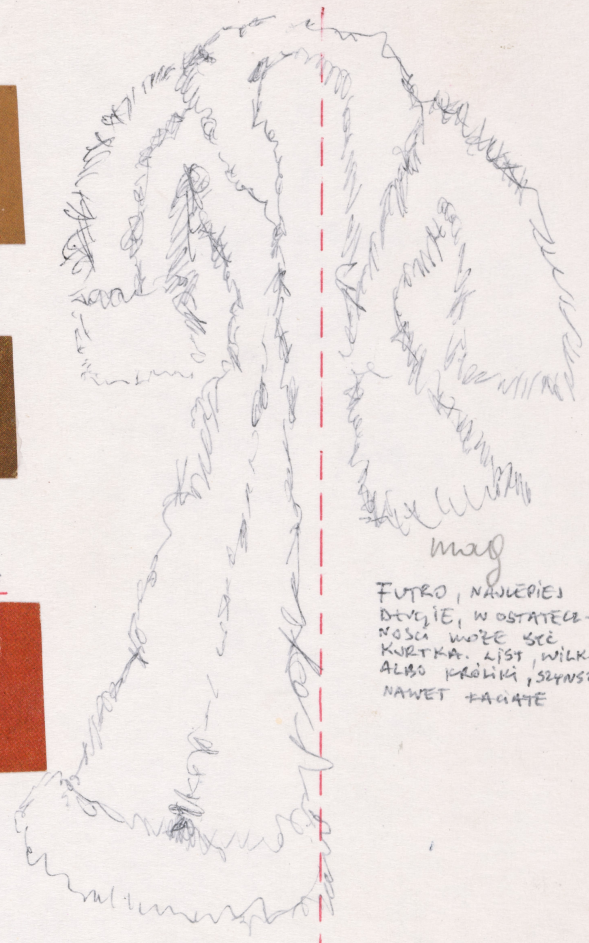 mag
FUTRO, NAJLEPIEJ
DŁUGIE, W OSTATECZ-
NOŚCI MOŻE BYĆ
KURTKA. LIST, WILK
ALBO KRÓLIKI, SZYNSZ
NAWET ŁACIATE